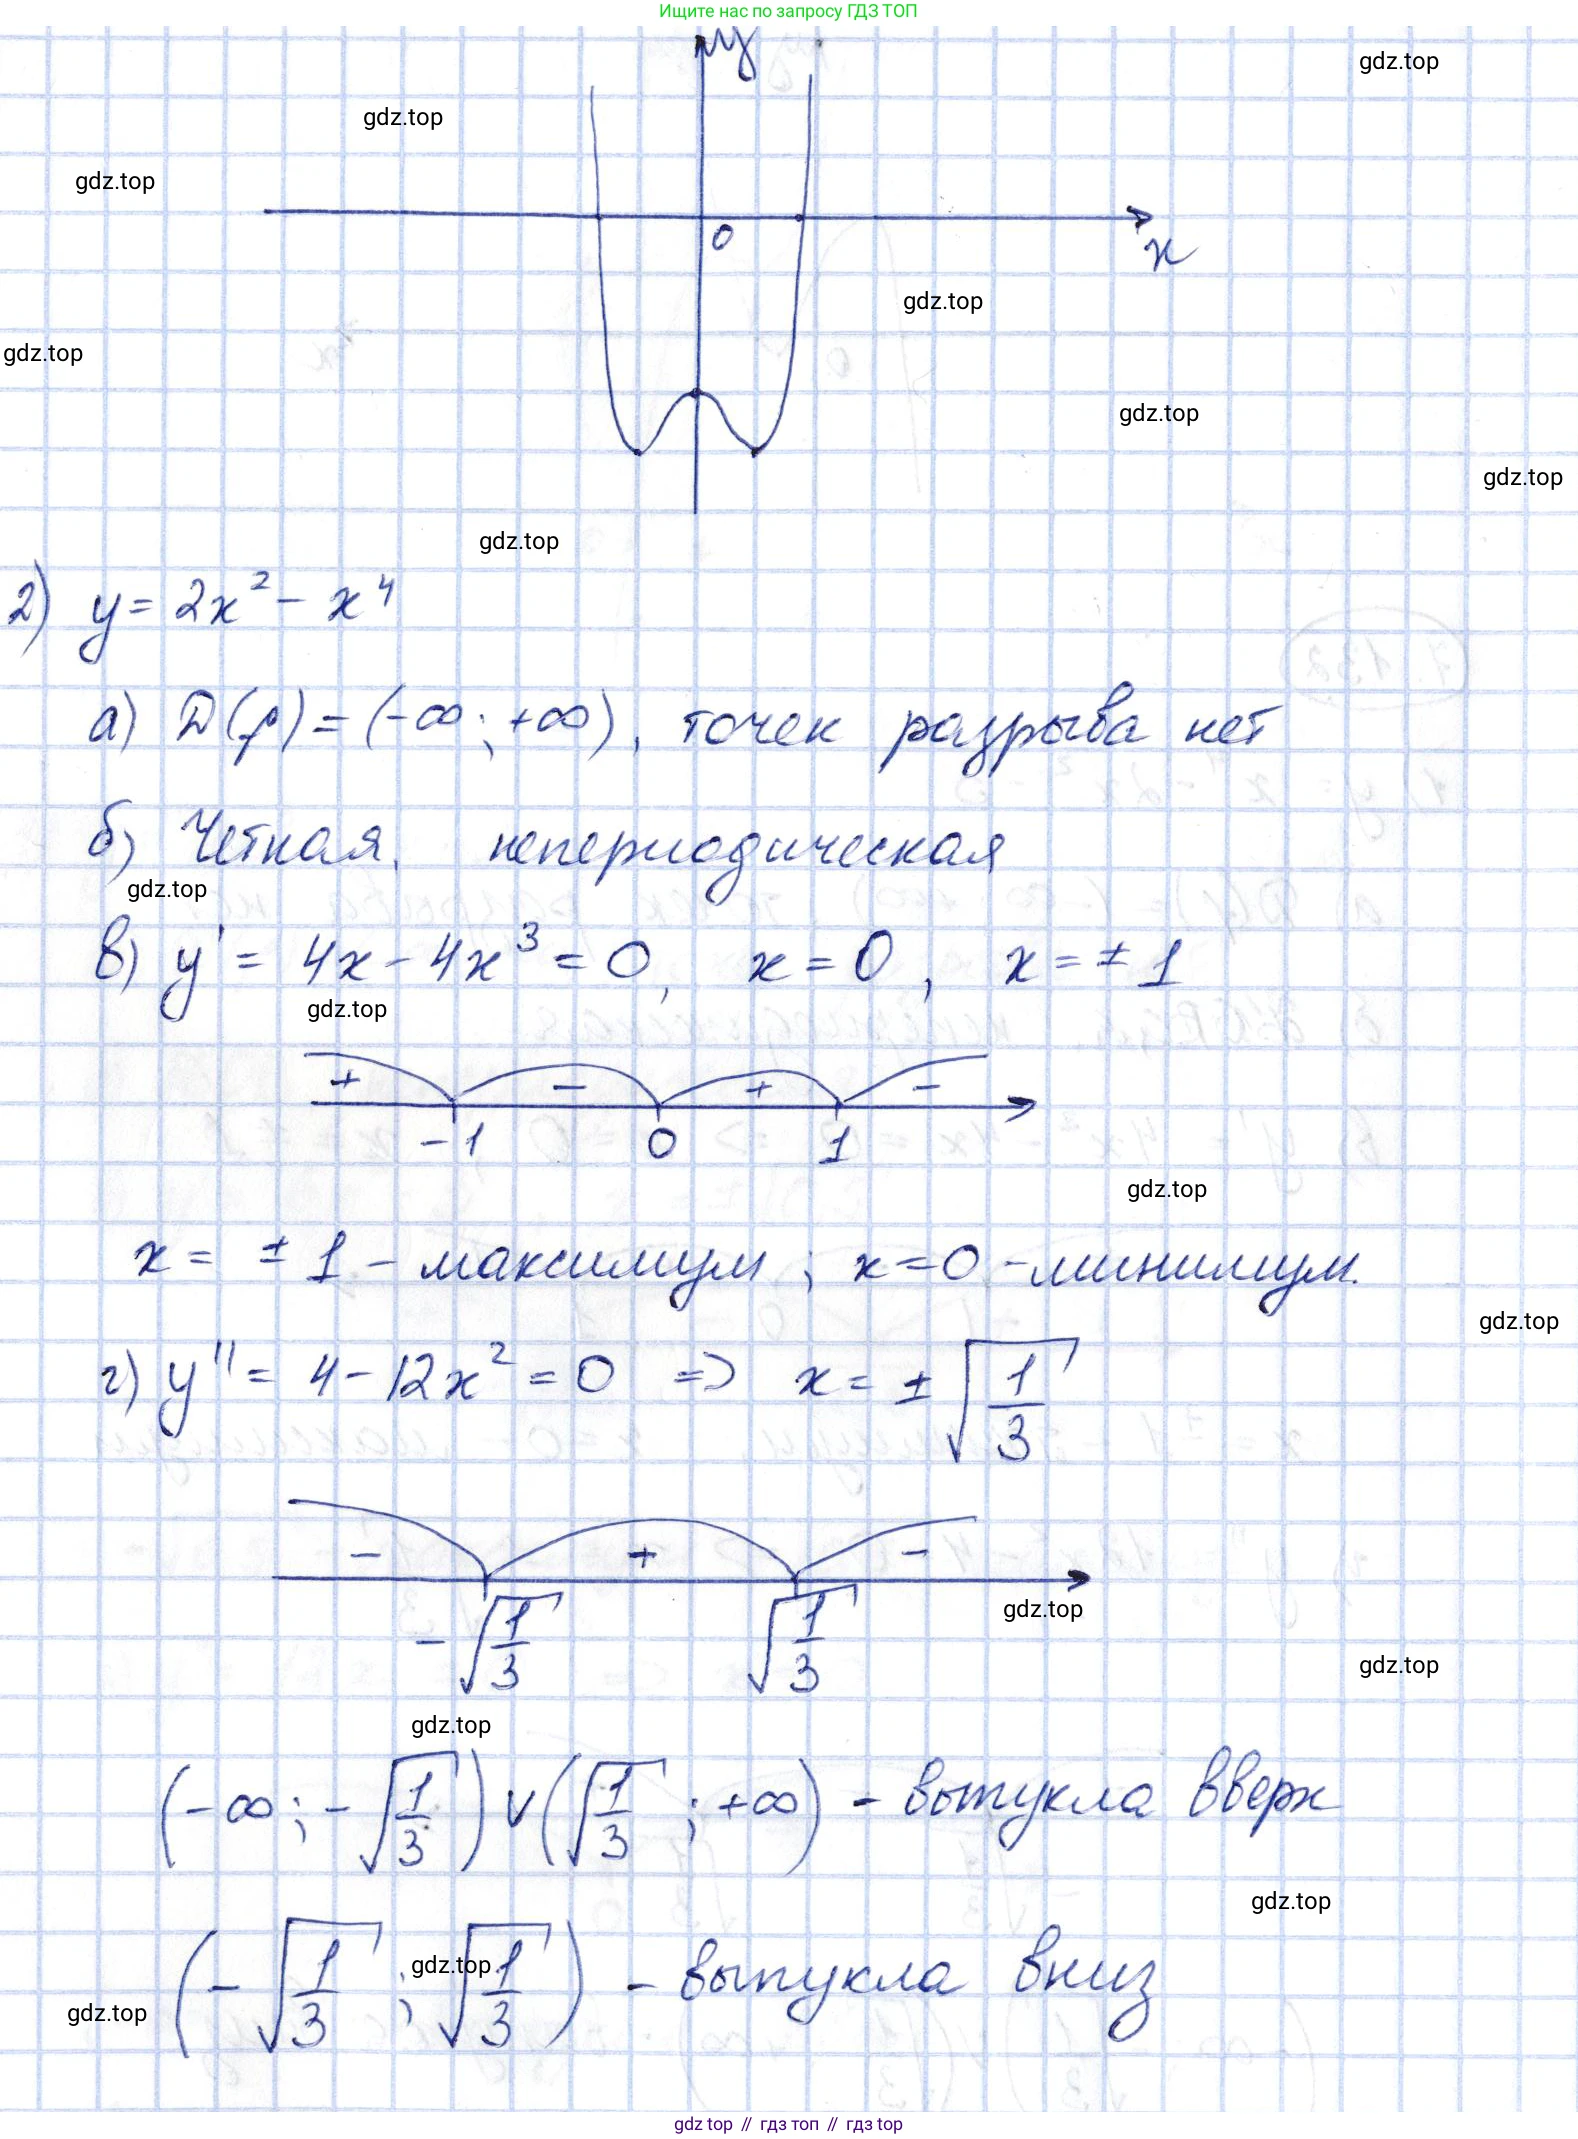 Ищите нас по запросу ГДЗ ТОП
y
gdz.top
gdz.top
gdz.top
0
x
gdz.top
gdz.top
gdz.top
gdz.top
gdz.top
2) y = 2x² - x⁴
а) D(f) = (-∞; +∞), точек разрыва нет
б) Четная, непериодическая
gdz.top
в) y' = 4x - 4x³ = 0, x = 0, x = ± 1
gdz.top
+ - + -
-1 0 1
gdz.top
x = ± 1 - максимум; x = 0 - минимум.
gdz.top
г) y'' = 4 - 12x² = 0 => x = ± √(1/3)
- + -
gdz.top
-√(1/3) √(1/3)
gdz.top
gdz.top
(-∞; -√(1/3)) ∨ (√(1/3); +∞) - выпукла вверх
gdz.top
(-√(1/3); √(1/3)) - выпукла вниз
gdz.top
gdz.top
gdz top // гдз топ // гдз top